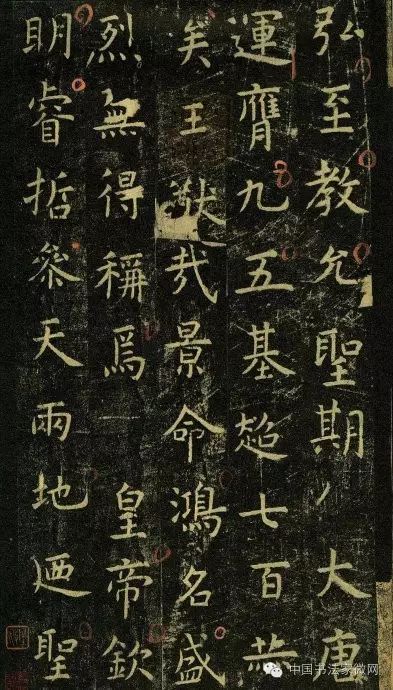 弘至教允聖期大唐
運膺九五基超七百
矣王猷哉景命鴻名盛
烈無得稱焉皇帝欽
明睿哲叅天兩地迺聖
中国书法家微网